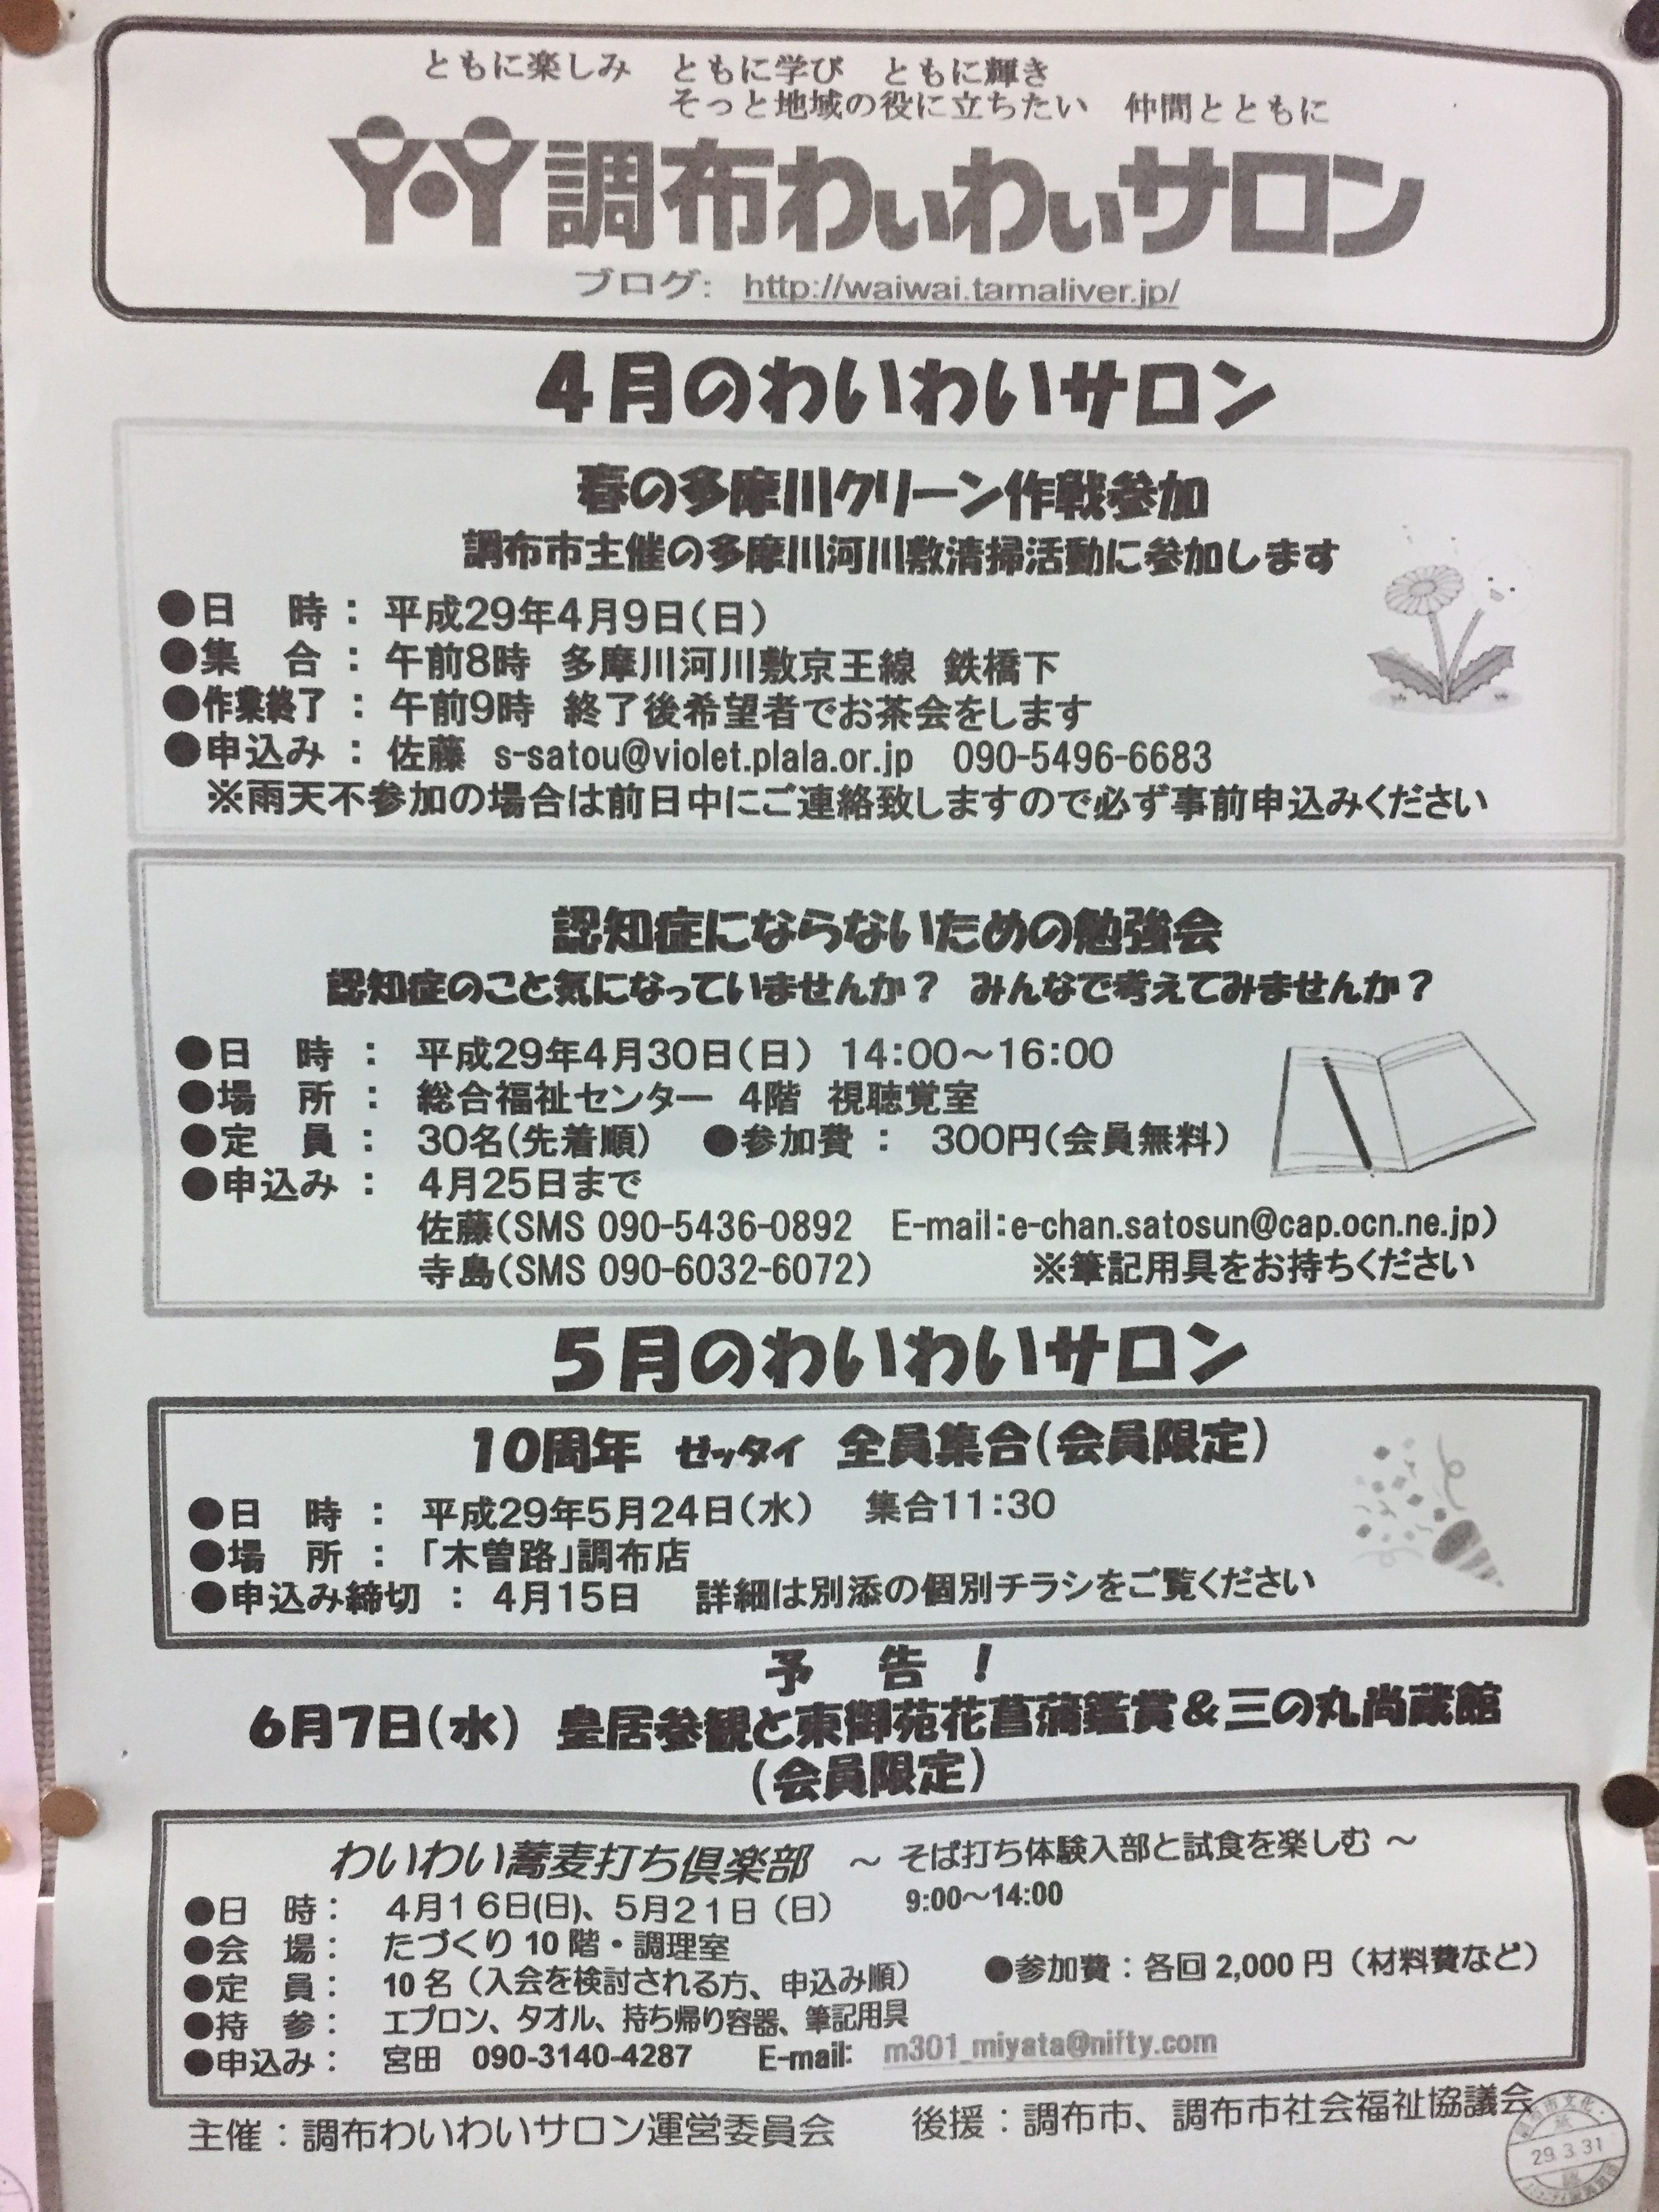 ともに楽しみ ともに学び ともに輝き
そっと地域の役に立ちたい 仲間とともに
調布わぃわぃサロン
ブログ: http://waiwai.tamaliver.jp/
4月のわいわいサロン
春の多摩川クリーン作戦参加
調布市主催の多摩川河川敷清掃活動に参加します
●日 時: 平成29年4月9日(日)
●集 合: 午前8時 多摩川河川敷京王線 鉄橋下
●作業終了: 午前9時 終了後希望者でお茶会をします
●申込み: 佐藤 s-satou@violet.plala.or.jp 090-5496-6683
※雨天不参加の場合は前日中にご連絡致しますので必ず事前申込みください
認知症にならないための勉強会
認知症のこと気になっていませんか? みんなで考えてみませんか?
●日 時: 平成29年4月30日(日) 14:00～16:00
●場 所: 総合福祉センター 4階 視聴覚室
●定 員: 30名(先着順) ●参加費: 300円(会員無料)
●申込み: 4月25日まで
佐藤(SMS 090-5436-0892 E-mail:e-chan.satosun@cap.ocn.ne.jp)
寺島(SMS 090-6032-6072) ※筆記用具をお持ちください
5月のわいわいサロン
10周年 ゼッタイ 全員集合(会員限定)
●日 時: 平成29年5月24日(水) 集合11:30
●場 所: 「木曽路」調布店
●申込み締切: 4月15日 詳細は別添の個別チラシをご覧ください
予 告 !
6月7日(水) 皇居参観と東御苑花菖蒲鑑賞＆三の丸尚蔵館
(会員限定)
わいわい蕎麦打ち倶楽部 ～ そば打ち体験入部と試食を楽しむ ～
●日 時: 4月16日(日)、5月21日(日) 9:00～14:00
●会 場: たづくり10階・調理室
●定 員: 10名(入会を検討される方、申込み順) ●参加費:各回2,000円(材料費など)
●持 参: エプロン、タオル、持ち帰り容器、筆記用具
●申込み: 宮田 090-3140-4287 E-mail: m301_miyata@nifty.com
主催:調布わいわいサロン運営委員会 後援:調布市、調布市社会福祉協議会
29.3.31